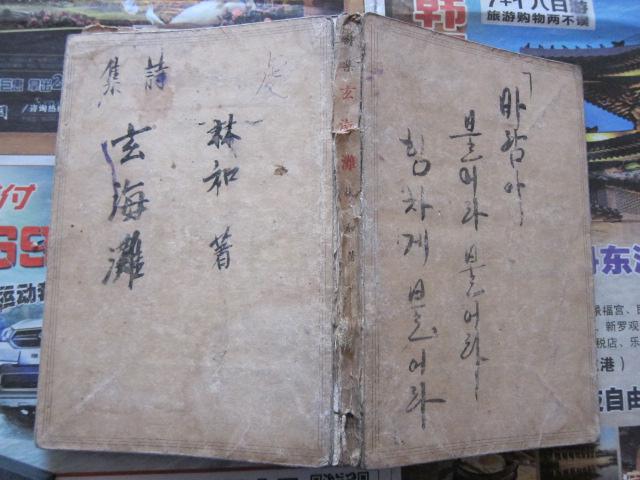 「바람아
불어라 불어라
힘차게 불어라
玄海灘
林和著
詩集
玄海灘
韩
旅游购物两不误
付
69
景福宫、
新罗
税店、乐
港）
自由